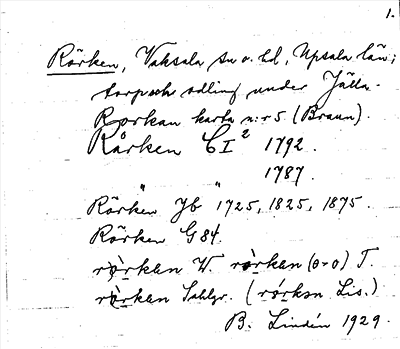 1.
Rörken, Vaksala sn o. hd, Upsala län;
torp och odling under Jälla.
Rorkan karta n:r 5 (Braun).
Rårken C I² 1792.
" " 1787.
Rörken Jb 1725, 1825, 1875.
Rörken G 84.
rörkan W. rörken (o-o) T.
rörkan Sahlgr. (rórkən Lis.)
B. Lindén 1929.